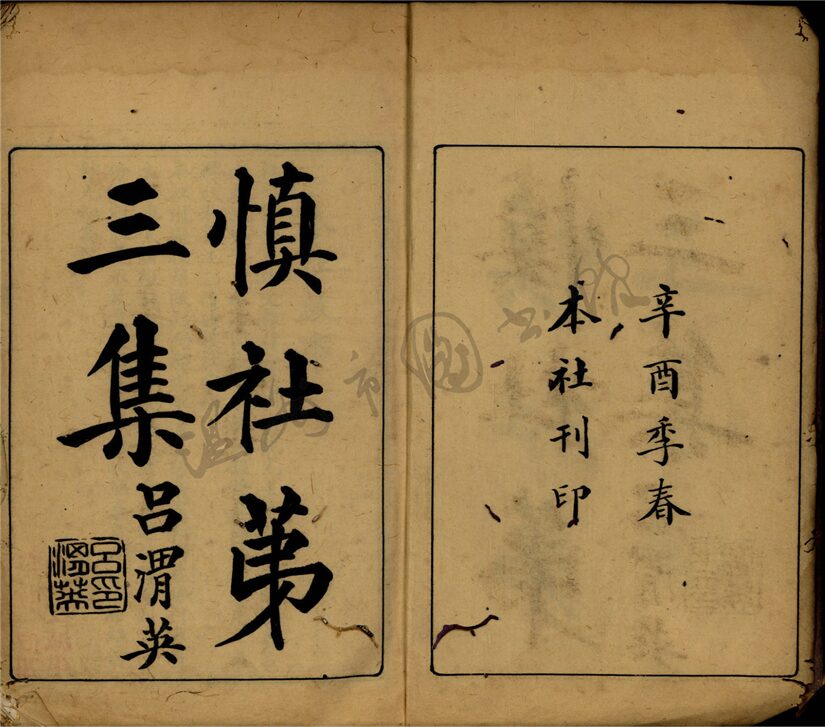 辛酉季春
本社刊印
慎社苐
三集
呂渭英
呂印
渭英